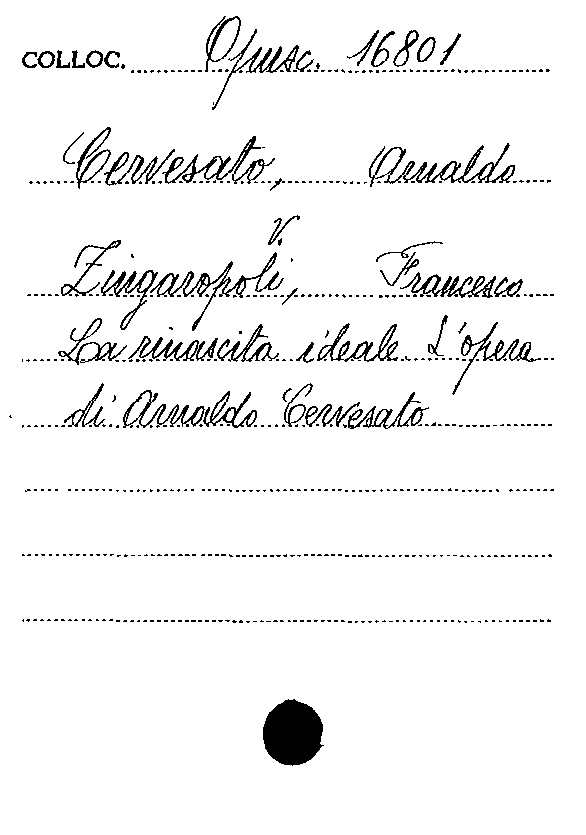 COLLOC. Opusc. 16801
Cervesato, Arnaldo
v.
Zingaropoli, Francesco
La rinascita ideale. L'opera
di Arnaldo Cervesato.